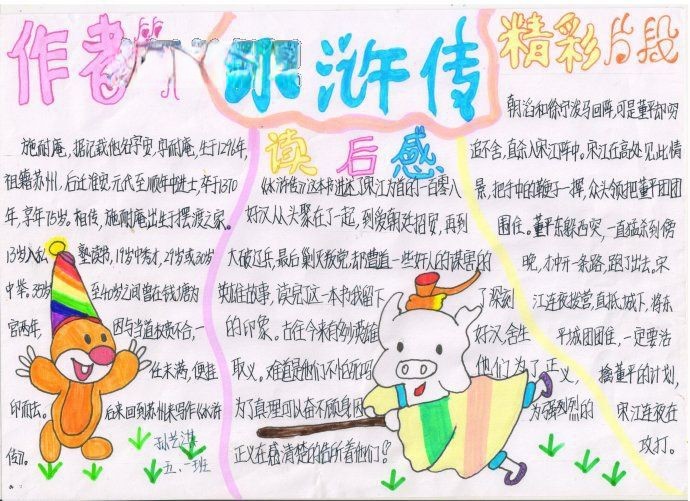 作者
水浒传
精彩片段
施耐庵,据记载他名字安,号耐庵,生于1296年,
祖籍苏州,后迁淮安,元代至顺年中进士,卒于1370
年,享年75岁。相传,施耐庵出生于摆渡之家。
13岁入私塾读书,19岁中秀才,29岁或30岁
中举。35岁至40岁之间曾在钱塘为
官两年,因与当道权贵不合,一
任未满,便挂
印而去。后来回到苏州来写作《水浒
传》。
孙兰淇
五.一班
读后感
《水浒传》这本书讲述了宋江为首的一百零八
好汉从头聚在了一起,到受朝廷招安,再到
大破辽兵,最后剿灭叛党,却遭一些奸人的谋害的
英雄故事,读完了这一本书我留下了深刻
的印象。古往今来的英雄好汉,舍生
取义。难道是他们不怕死吗 他们为了正义,
为了真理可以奋不顾身,因为强烈的
正义在感清楚的告诉着他们!
朝滔和徐宁拨马回阵,可是董平却穷
追不舍,直杀入宋江阵中。宋江在高处见此情
景,把手中的鞭子一挥,众头领把董平团团
围住。董平东躲西突,一直猛杀到傍
晚,才冲开一条路,跑了出去。宋
江连夜拔营,直抵城下,将东
平城团团住,一定要活
擒董平的计划,
宋江连夜在
攻打。